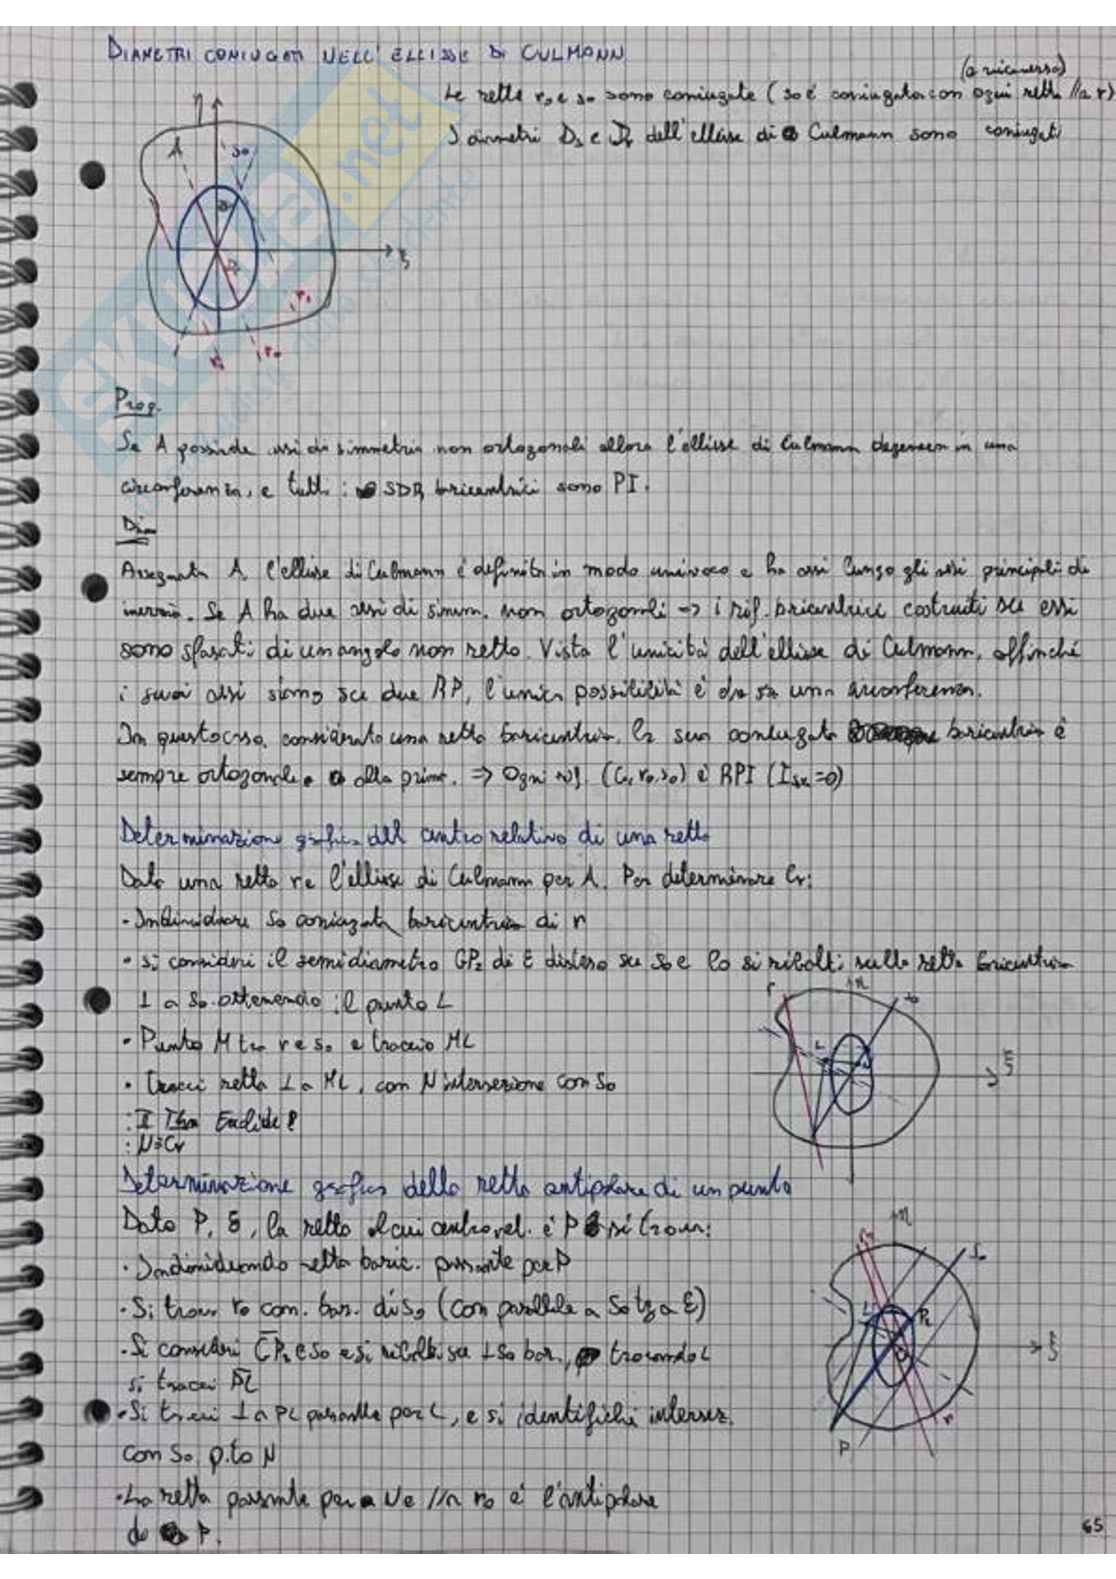 DIAMETRI CONIUGATI NELL'ELLISSE DI CULMANN
(a vicenversa)
Le rette r₀ e s₀ sono coniugate (s₀ è coniugata con ogni retta // a r)
I diametri Ds e Dr dell'ellisse di Culmann sono coniugati
η
s₀
ξ
r₁
r₀
Prop.
Se A possiede assi di simmetria non ortogonali allora l'ellisse di Culmann degenera in una
circonferenza, e tutti i SDR baricentrici sono PI.
Dim
Assegnata A l'ellisse di Culmann è definita in modo univoco e ha assi lungo gli assi principali di
inerzia. Se A ha due assi di simm. non ortogonali → i rif. baricentrici costruiti su essi
sono sfasati di un angolo non retto. Vista l'unicità dell'ellisse di Culmann, affinché
i suoi assi siano su due RP, l'unica possibilità è che sia una circonferenza.
In questo caso, considerata una retta baricentrica, la sua coniugata baricentrica è
sempre ortogonale alla prima. ⇒ Ogni rif. (G, r₀, s₀) è RPI (Isr=0)
Determinazione grafica del centro relativo di una retta
Data una retta r e l'ellisse di Culmann per A. Per determinare Cr:
- Individuare s₀ coniugata baricentrica di r
• si consideri il semidiametro GP₂ di E disteso su s₀ e lo si ribalti sulla retta baricentrica
⊥ a s₀ ottenendo il punto L
• Punto M tra r e s₀ e traccio ML
• Tracci retta ⊥ a ML, con N intersezione con s₀
: II Thm Euclide
: N≡Cr
r
η
L
ξ
Determinazione grafica della retta antipolare di un punto
Dato P, E, la retto il cui centro rel. è P si trova:
• Individuando retta baric. passante per P
• Si trova r₀ con. bar. di s₀ (con parallele a s₀ tg a E)
• Si consideri GP₂ e s₀ e si ribalti su ⊥s₀ bar., trovando L
si tracci PL
• Si tracci ⊥ a PL passante per L, e si identifichi intersez.
con s₀, p.to N
• La retta passante per N e // a r₀ è l'antipolare
di P.
r₀
η
s₀
L
P₂
ξ
r
P
65